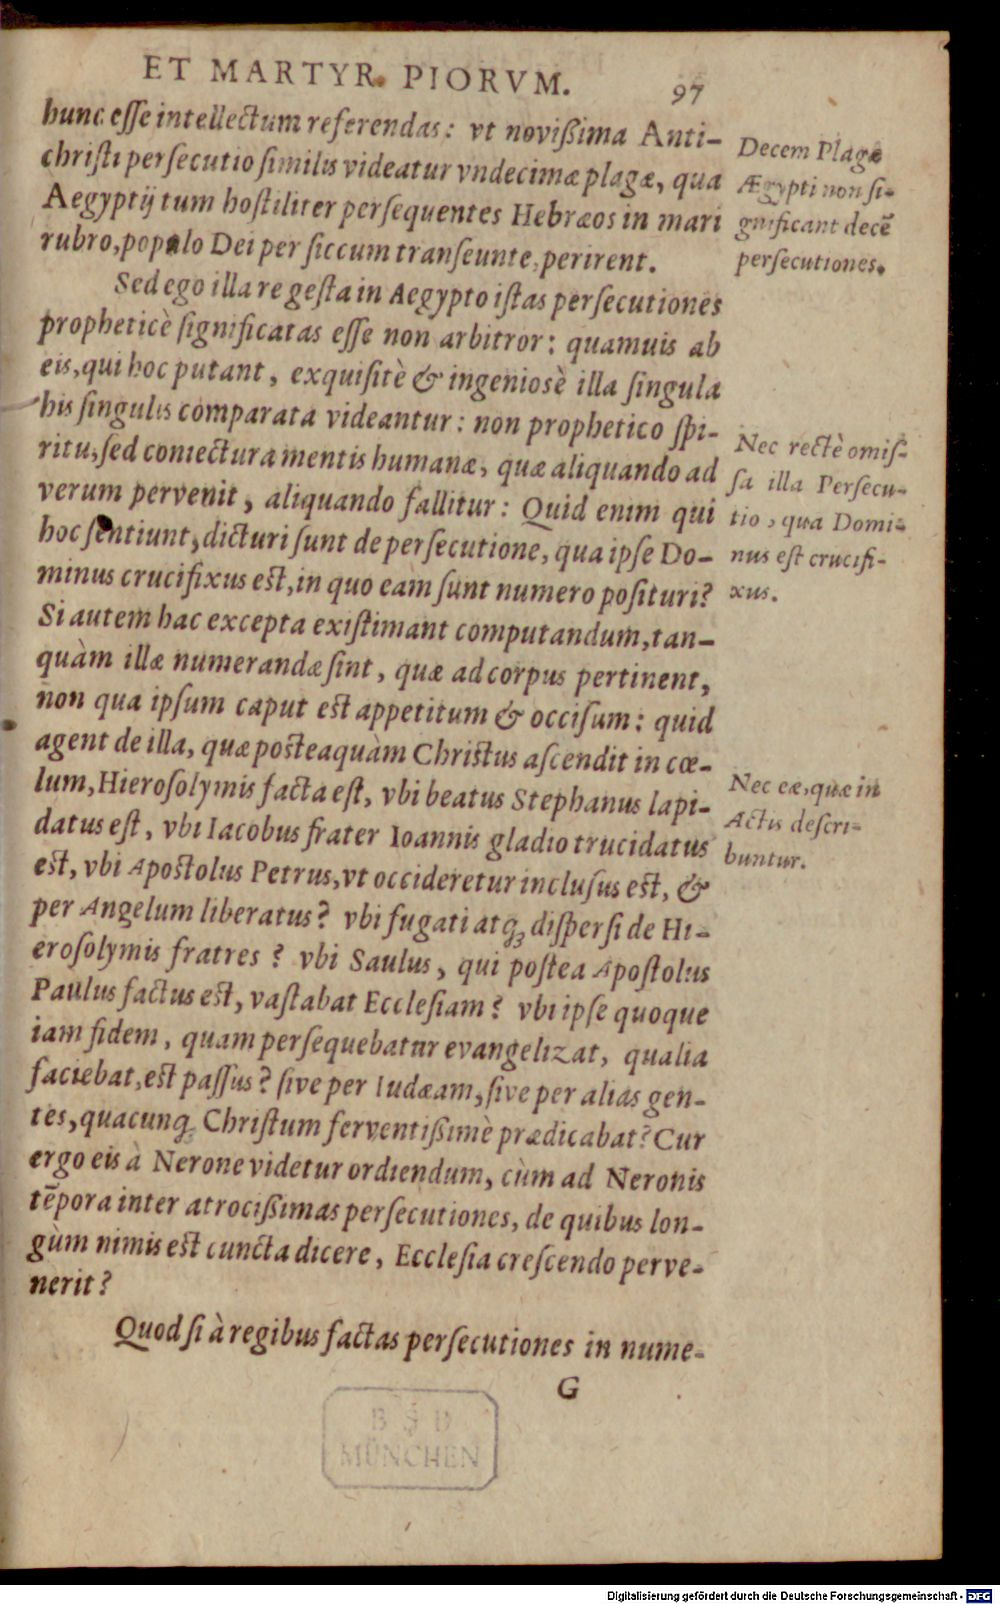 ET MARTYR. PIORVM.
97
hunc esse intellectum referendas: vt novißima Anti-
christi persecutio similis videatur vndecimæ plagæ, qua
Aegyptij tum hostiliter persequentes Hebræos in mari
rubro, populo Dei per siccum transeunte, perirent.
Sed ego illa re gesta in Aegypto istas persecutiones
propheticè significatas esse non arbitror: quamuis ab
eis, qui hoc putant, exquisitè & ingeniosè illa singula
his singulis comparata videantur: non prophetico spi-
ritu, sed coniectura mentis humanæ, quæ aliquando ad
verum pervenit, aliquando fallitur: Quid enim qui
hoc sentiunt, dicturi sunt de persecutione, qua ipse Do-
minus crucifixus est, in quo eam sunt numero posituri?
Si autem hac excepta existimant computandum, tan-
quàm illæ numerandæ sint, quæ ad corpus pertinent,
non qua ipsum caput est appetitum & occisum: quid
agent de illa, quæ posteaquàm Christus ascendit in cœ-
lum, Hierosolymis facta est, vbi beatus Stephanus lapi-
datus est, vbi Iacobus frater Ioannis gladio trucidatus
est, vbi Apostolus Petrus, vt occideretur inclusus est, &
per Angelum liberatus? vbi fugati atq́; dispersi de Hi-
erosolymis fratres? vbi Saulus, qui postea Apostolus
Paulus factus est, vastabat Ecclesiam? vbi ipse quoque
iam fidem, quam persequebatur evangelizat, qualia
faciebat, est passus? sive per Iudæam, sive per alias gen-
tes, quacunq; Christum ferventißimè prædicabat? Cur
ergo eis à Nerone videtur ordiendum, cùm ad Neronis
tẽpora inter atrocißimas persecutiones, de quibus lon-
gùm nimis est cuncta dicere, Ecclesia crescendo perve-
nerit?
Quod si à regibus factas persecutiones in nume-
G
Decem Plagæ
Ægypti non si-
gnificant decẽ
persecutiones.
Nec rectè omis-
sa illa Persecu-
tio, qua Domi-
nus est crucifi-
xus.
Nec eæ, quæ in
Actis descri-
buntur.
BSB
MÜNCHEN
Digitalisierung gefördert durch die Deutsche Forschungsgemeinschaft - DFG